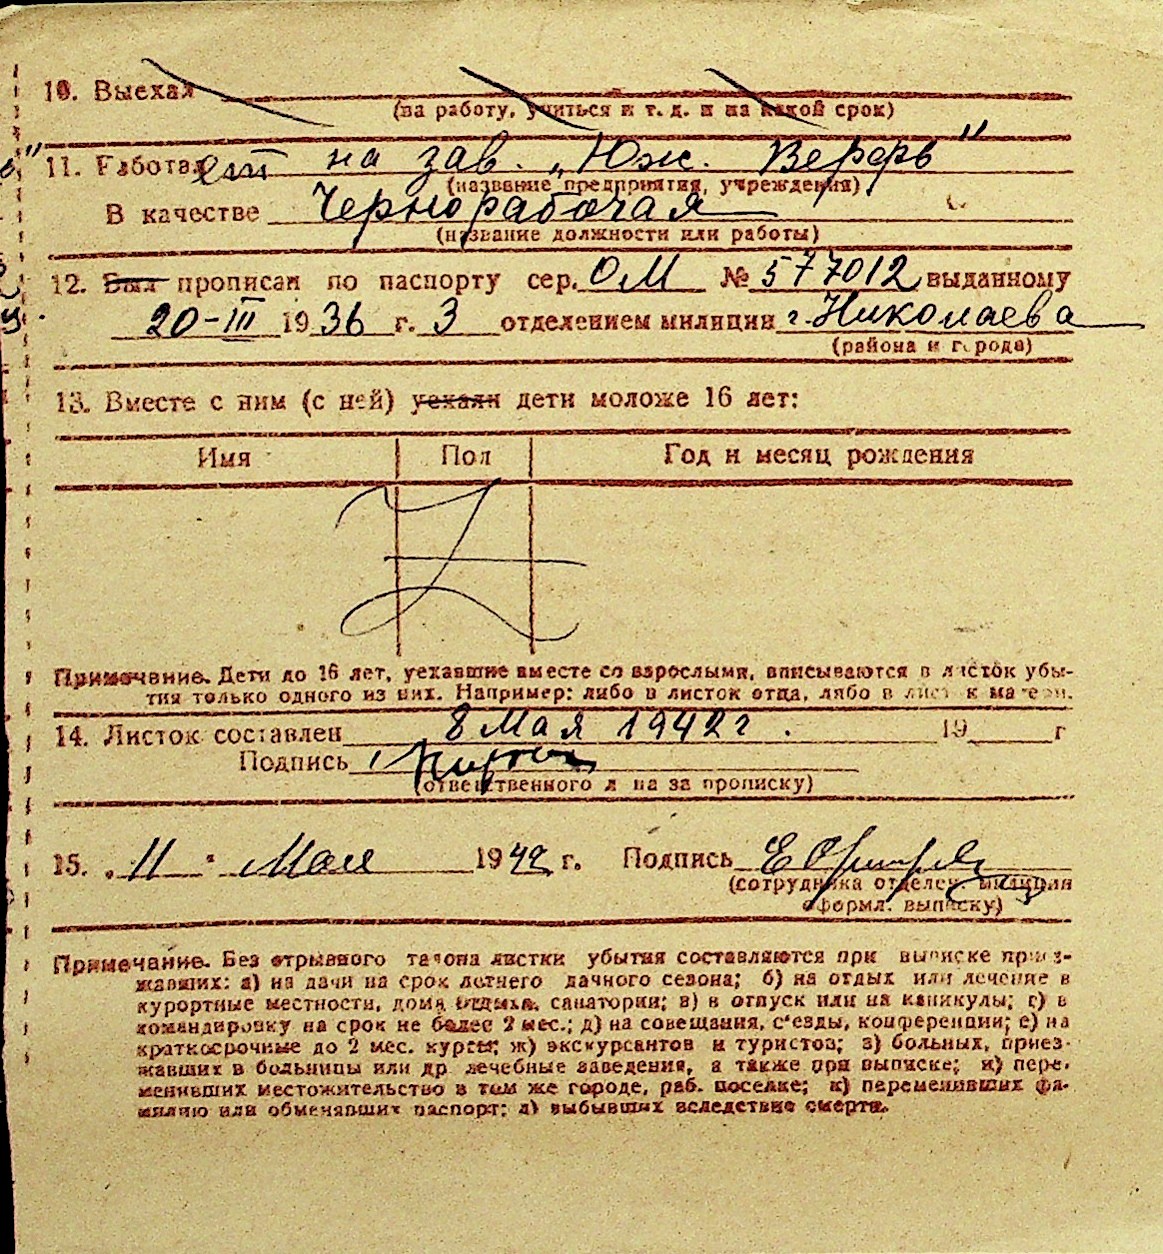 10. Выехал
(на работу, учиться и т. д. и на какой срок)
11. Работает на зав. „Юж. Верфь"
(название предприятия, учреждения)
В качестве Чернорабочая
(название должности или работы)
12. Был прописан по паспорту сер. ОМ № 577012 выданному
20-III 1936 г. 3 отделением милиции г. Николаева
(района и города)
13. Вместе с ним (с ней) уехали дети моложе 16 лет:
Имя Пол Год и месяц рождения
Примечание. Дети до 16 лет, уехавшие вместе со взрослыми, вписываются в листок убы-
тия только одного из них. Например: либо в листок отца, либо в листок матери.
14. Листок составлен 8 Мая 1942 г. 19 г
Подпись
(ответственного лица за прописку)
15. „11" Мая 1942 г. Подпись
(сотрудника отделен. милиции
оформл. выписку)
Примечание. Без отрывного талона листки убытия составляются при выписке приез-
жавших: а) на дачи на срок летнего дачного сезона; б) на отдых или лечение в
курортные местности, дома отдыха, санатории; в) в отпуск или на каникулы; г) в
командировку на срок не более 2 мес.; д) на совещания, с'езды, конференции; е) на
краткосрочные до 2 мес. курсы; ж) экскурсантов и туристов; з) больных, приез-
жавших в больницы или др. лечебные заведения, а также при выписке; и) пере-
менивших местожительство в том же городе, раб. поселке; к) переменивших фа-
милию или обменявших паспорт; л) выбывших вследствие смерти.